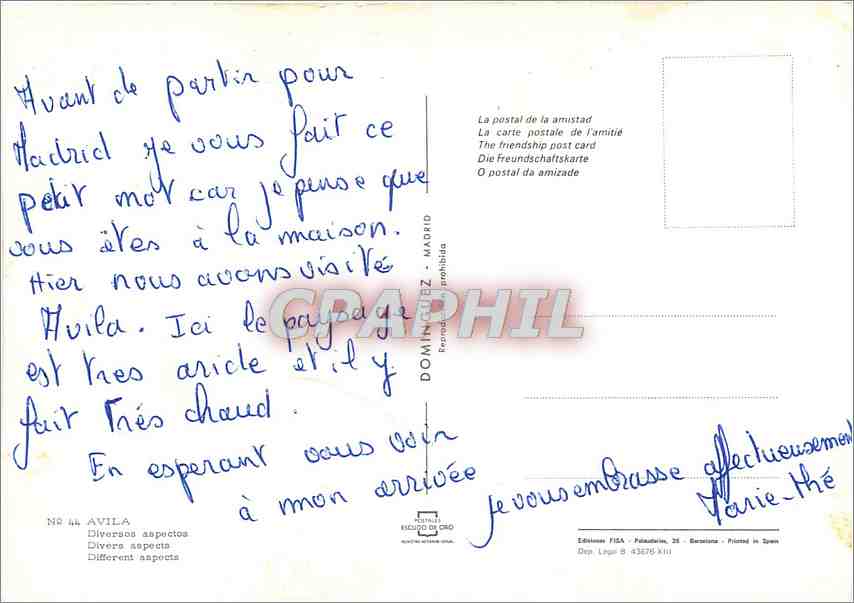 Avant de partir pour
Madrid je vous fait ce
petit mot car je pense que
vous êtes à la maison.
Hier nous avons visité
Avila. Ici le paysage
est tres aride et il y
fait trés chaud.
En esperant vous voir
à mon arrivée
je vous embrasse affectueusement
Marie-thé
Nº 44 AVILA
Diversos aspectos
Divers aspects
Different aspects
DOMINGUEZ - MADRID
Reproducción prohibida
CPAPHIL
POSTALES
ESCUDO DE ORO
La postal de la amistad
La carte postale de l'amitié
The friendship post card
Die Freundschaftskarte
O postal da amizade
Ediciones FISA - Palaudarias, 26 - Barcelona - Printed in Spain
Dep. Legal B 43676-XIII